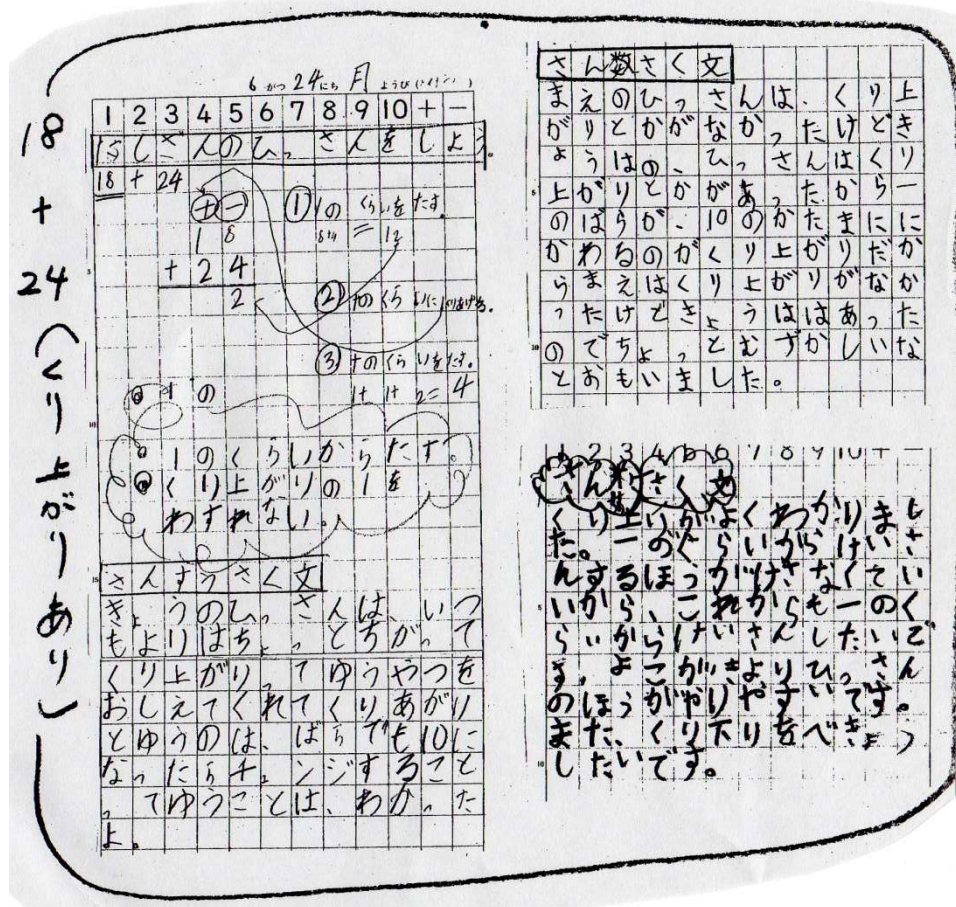 18+24(くり上がりあり)
6がつ24にち月ようび
1 2 3 4 5 6 7 8 9 10 + -
たしざんのひっさんをしよう。
18+24
十 一
1 8
+ 2 4
2
① 1のくらいをたす。
12
② 十のくらいにくりあげる。
③ 十のくらいをたす。
1+1+2=4
十の
1のくらいからたす。
くり上がりの1を
わすれない。
さんすうさく文
きょうのひっさんは、いつ
もよりはちょっとちがって
くり上がりってゆうやつを
おしえてくれてくりあがり
とゆうのは、ばらでも10に
なったらチェンジすること
ってゆうことは、わかった
よ。
さん数さく文
まえのひっさんは、くり上
がりとかがなかったけどき
ょうはの、ひっさんはくり
上がりとかがあったから一
のばらが、10のかたまにに
かわるのがくり上がりだか
らまえはくり上がりがなか
ったけどきょうははあった
のでちょっとむづかしいな
とおもいました。
1 2 3 4 5 6 7 8 9 10 + -
さん数さく文
くり上がよくわかりまし
た。一のくらいからけいさ
んするほうがけさなくてい
いから、これからも一のく
らいからけいさんしたいで
す。よこがきよりひっさん
のほうがやりやすいです。
また、くり下りをべきょう
したいです。